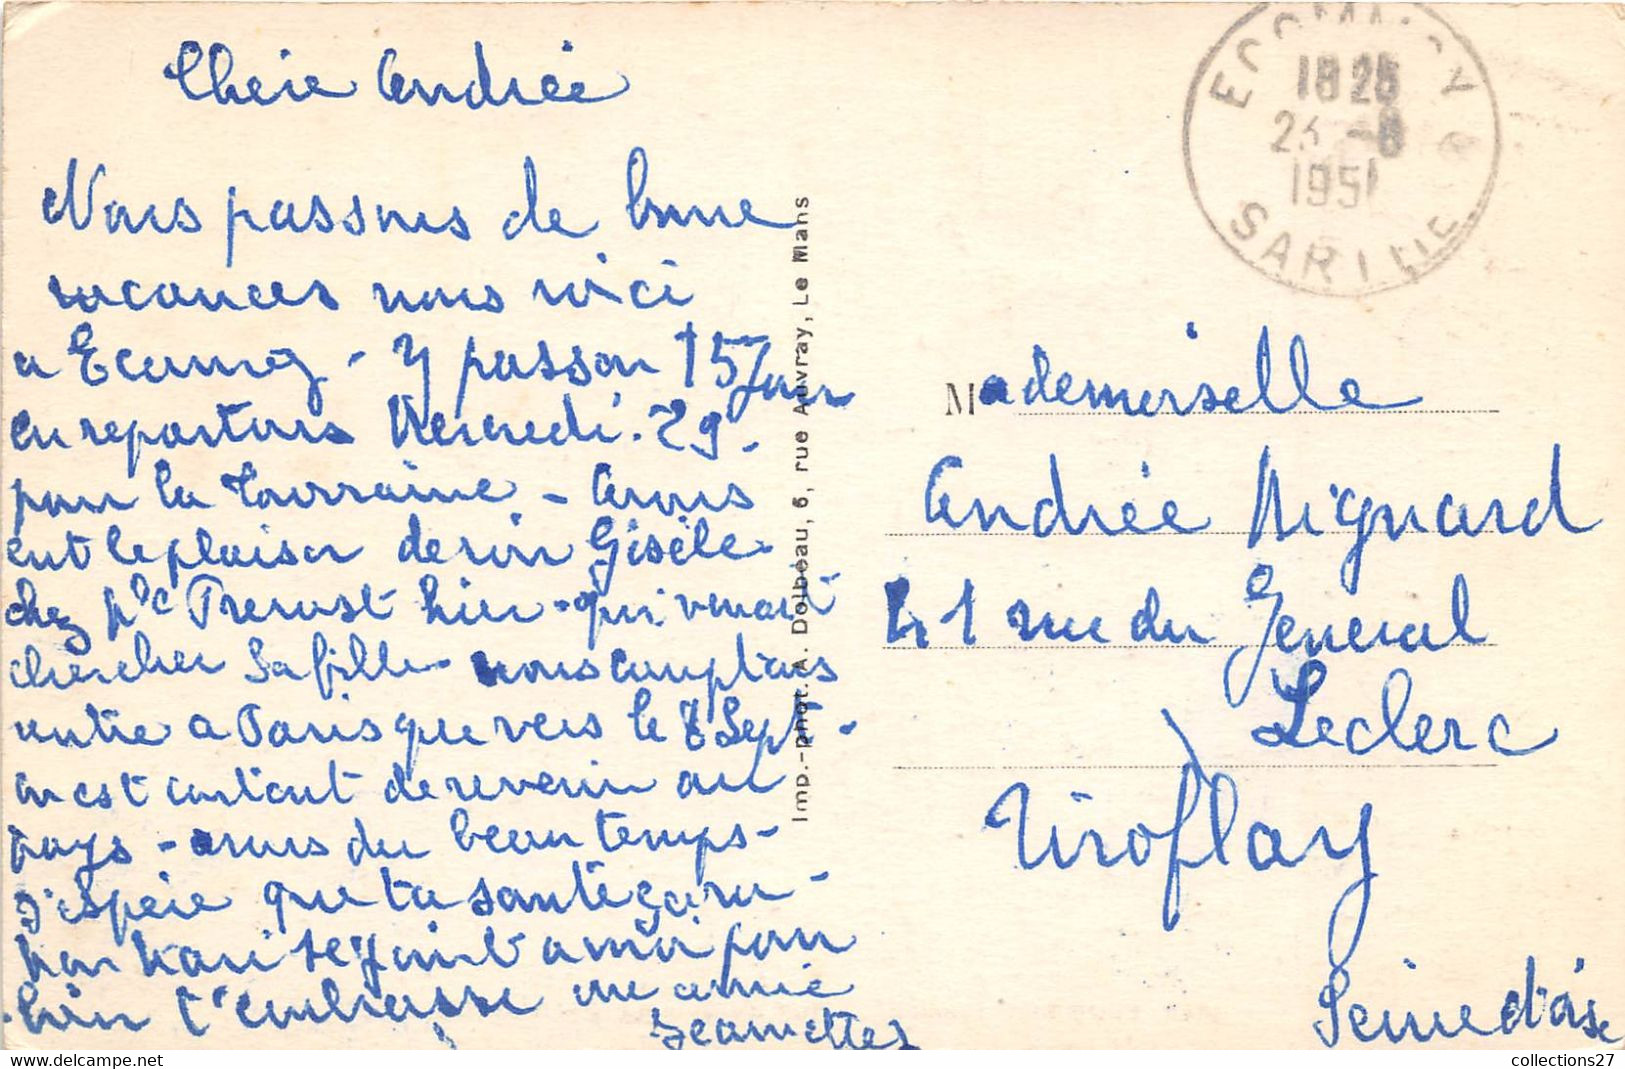 Chère Andrée
Nous passons de bonne
vacances nous voici
a Ecomoy - y passon 15 Jours
en repartons Mercredi. 29 -
pour la Touraine - Avons
eut le plaisir de voir Gisèle
chez Prevost hier - qui venait
chercher Sa fille - nous comptons
rentré a Paris que vers le 8 Sept -
on est content de revenir au
pays - avons du beau temps -
J'espère que ta santé ça va -
mon Mari se joint a moi pour
bien t'embrasse une amie
Jeannette
Imp.-phot. A. Dolbeau, 6, rue Auvray, Le Mans
ECOMMOY
18 25
23 -8
1951
SARTHE
Mademoiselle
Andrée Mignard
41 rue du General
Leclerc
Viroflay
Seine d'oise
collections27